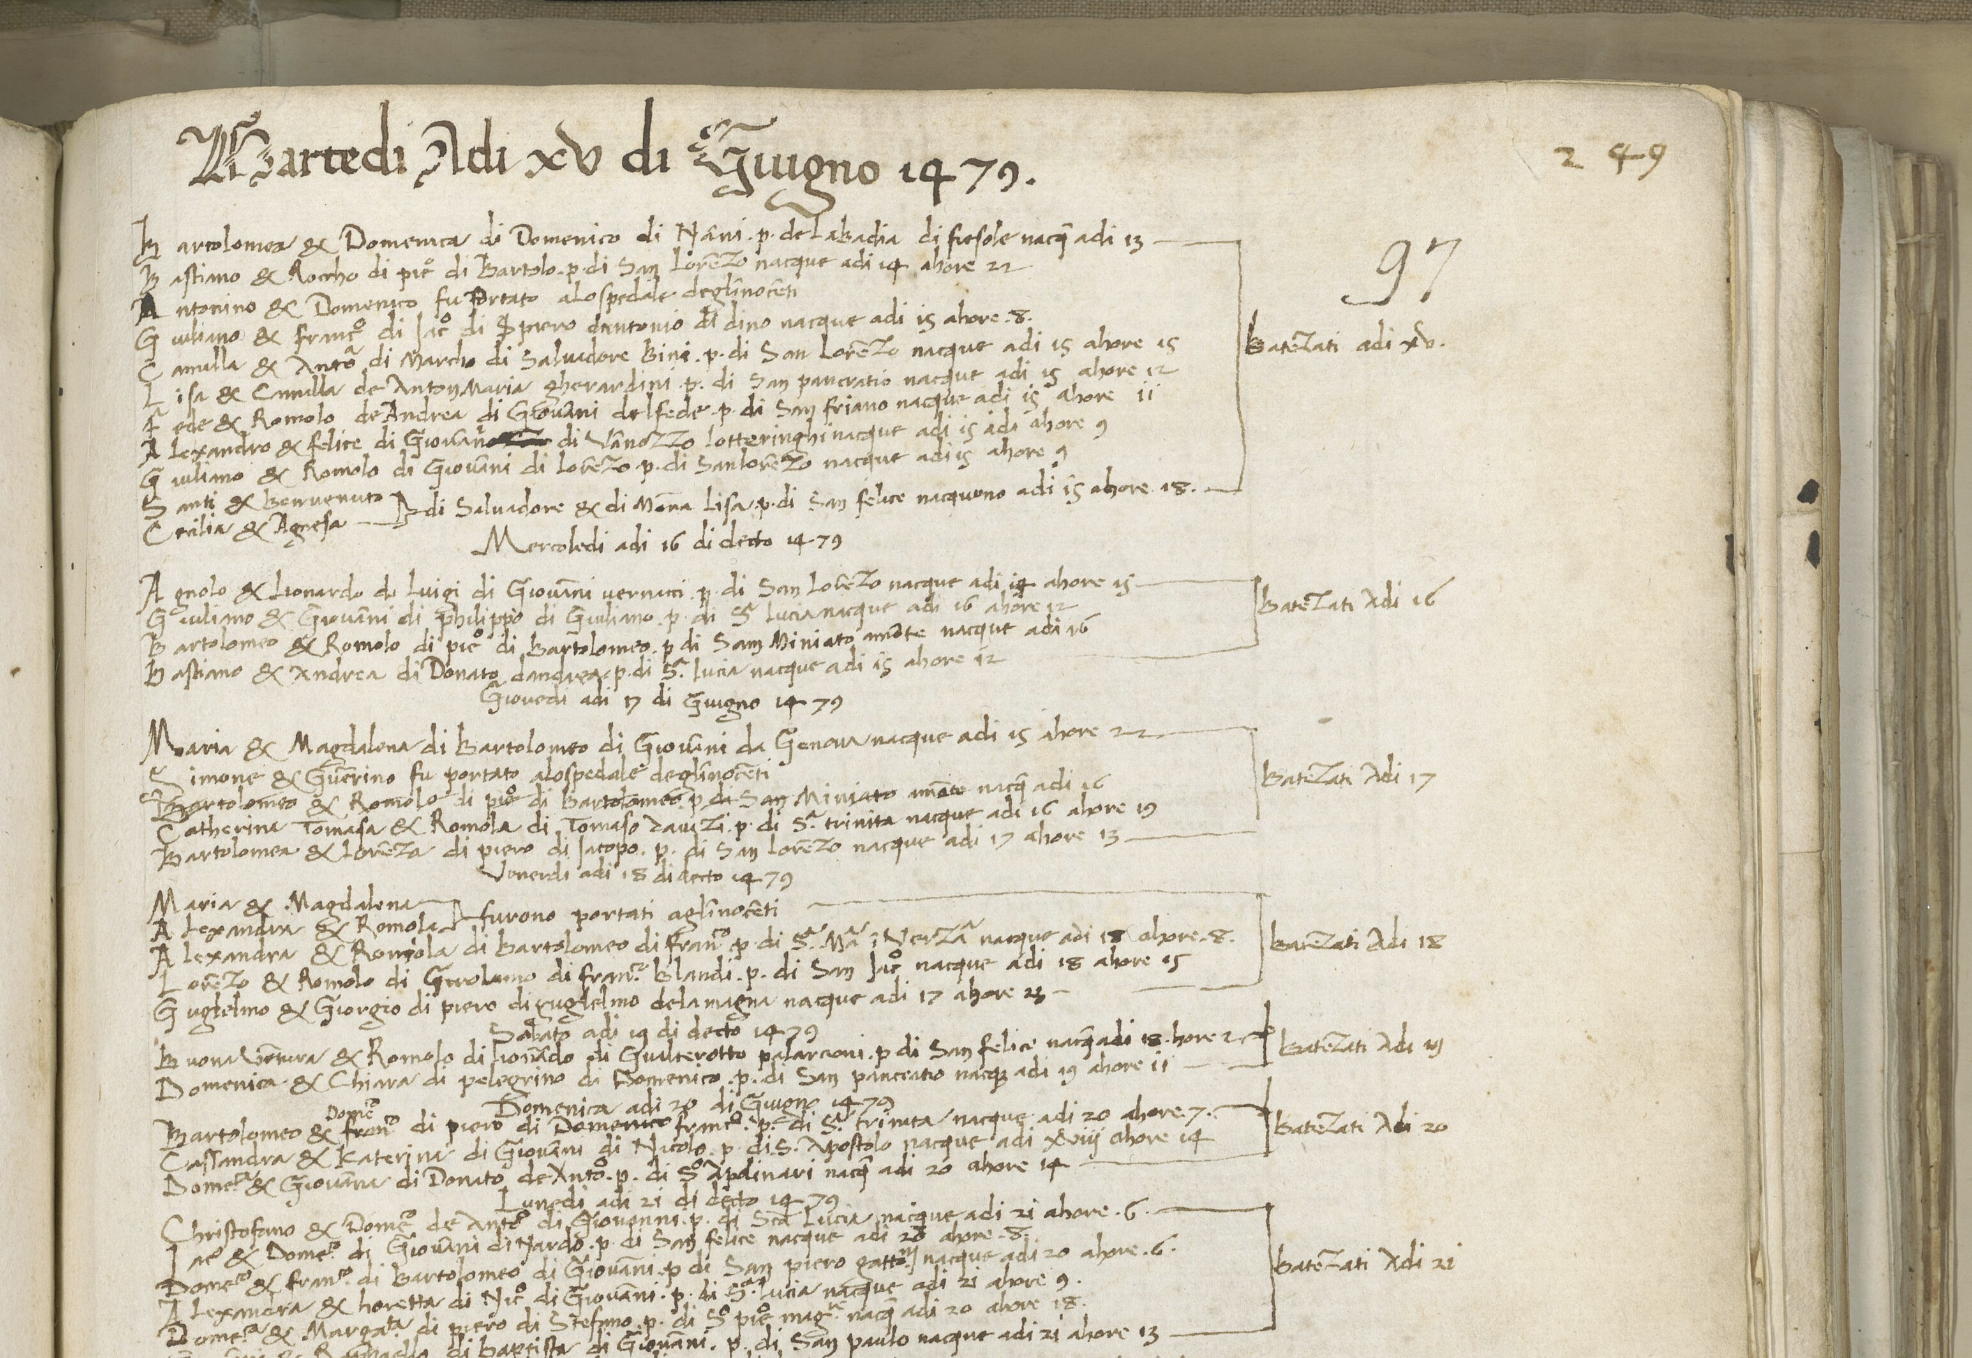 Martedi Adi xv di Giugno 1479.
249
Bartolomea & Domenica di Domenico di Nāni .p. de Labadia di fiesole nacq̄ adi 13
97
Bastiano & Roccho di pi͞e͞o di Bartolo .p. di San Lorēzo nacque adi 14 ahore 22
Antonino & Domenico fu portato alospedale deglīnocēti
Giuliano & franc͞o di Jac͞o di piero dantonio di dino nacque adi 15 ahore .8.
Camilla & Antōa di Marcho di Salvadore Bini .p. di San Lorēzo nacque adi 15 ahore 15
Batezati adi xv.
Lisa & Camilla de AntonMaria gherardini .p. di San pancratio nacque adi 15 ahore 12
Fede & Romolo de Andrea di Giovāni del fede .p. di San friano nacque adi 15 ahore 11
Alexandro & felice di Giovan di Vānozzo lotteringhi nacque adi 15 adi ahore 9
Giuliano & Romolo di Giovāni di Lorēzo .p. di San lorēzo nacque adi 15 ahore 9
Santi & Benvenuto
Cecilia & Agnesa di Salvadore & di Mōna Lisa .p. di San felice nacqueno adi 15 ahore .18.
Mercoledi adi 16 di decto 1479
Agnolo & Lionardo di Luigi di Giovāni vernacci .p. di San Lorēzo nacque adi 14 ahore 15
Batezati Adi 16
Giuliano & Giovāni di philippo di Giuliano .p. di Sa lucia nacque adi 16 ahore 12
Bartolomeo & Romolo di pi͞e͞o di Bartolomeo .p. di San Miniato amōte nacque adi 16
Bastiano & Andrea di Donato dandrea .p. di Sa lucia nacque adi 15 ahore 12
Giovedi adi 17 di Giugno 1479
Maria & Magdalena di Bartolomeo di Giovāni da Genova nacque adi 15 ahore 22
Simone & Guerino fu portato alospedale deglīnocēti
Batezati Adi 17
Bartolomeo & Romolo di pi͞e͞o di Bartolomeo .p. di San Miniato amōte nacq̄ adi 16
Catherina Tomasa & Romola di Tomaso davizi .p. di Sa trinita nacque adi 16 ahore 19
Bartolomea & Lorēza di piero di Jacopo .p. di San Lorēzo nacque adi 17 ahore 13
Venerdi adi 18 di decto 1479
Maria & Magdalena
Alexandra & Romola furono portati aglīnocēti
Alexandra & Romola di Bartolomeo di franc͞o .p. di Sa Ma ī Verza nacque adi 18 ahore .8.
Batezati Adi 18
Lorēzo & Romolo di Girolamo di franc͞o Blandi .p. di San Jac͞o nacque adi 18 ahore 15
Guglelmo & Giorgio di piero di guglelmo delamagna nacque adi 17 ahore 23
Sabato adi 19 di decto 1479
Buonaventura & Romolo di lionādo di Gualterotto .p. di San felice nacq̄ adi 18. hore
Batezati Adi 19
Domenica & Chiara di pelegrino di Domenico .p. di San pancratio nacque adi 19 ahore 11
Domenica adi 20 di Giugno 1479
Domēo
Bartolomeo & franc͞o di piero di Domenico franc͞o .p. di Sa trinita nacque adi 20 ahore .7.
Batezati Adi 20
Cassandra & Katerina di Giovāni di Nicolo .p. di S. Apostolo nacque adi xviiij ahore 14
Domeca & Giovāna di Donato de Antōo .p. di So Apolinari nacq̄ adi 20 ahore 14
Lunedi adi 21 di decto 1479
Christofano & Domēo de Antōo di Giovenni .p. di Scā Lucia nacque adi 21 ahore .6.
Jaco & Domeco di Giovāni di Nardo .p. di San felice nacque adi 20 ahore .8.
Domeco & franco di Bartolomeo di Giovāni .p. di San piero gattoni nacque adi 20 ahore .6.
Batezati Adi 21
Alexandra & horetta di Nico di Giovāni .p. di Sa lucia nacque adi 21 ahore 9.
Domeca & Margata di piero di Stefano .p. di So pi͞e͞o magre nacq̄ adi 20 ahore 18.
di Baptista di Giovāni .p. di San paulo nacque adi 21 ahore 13